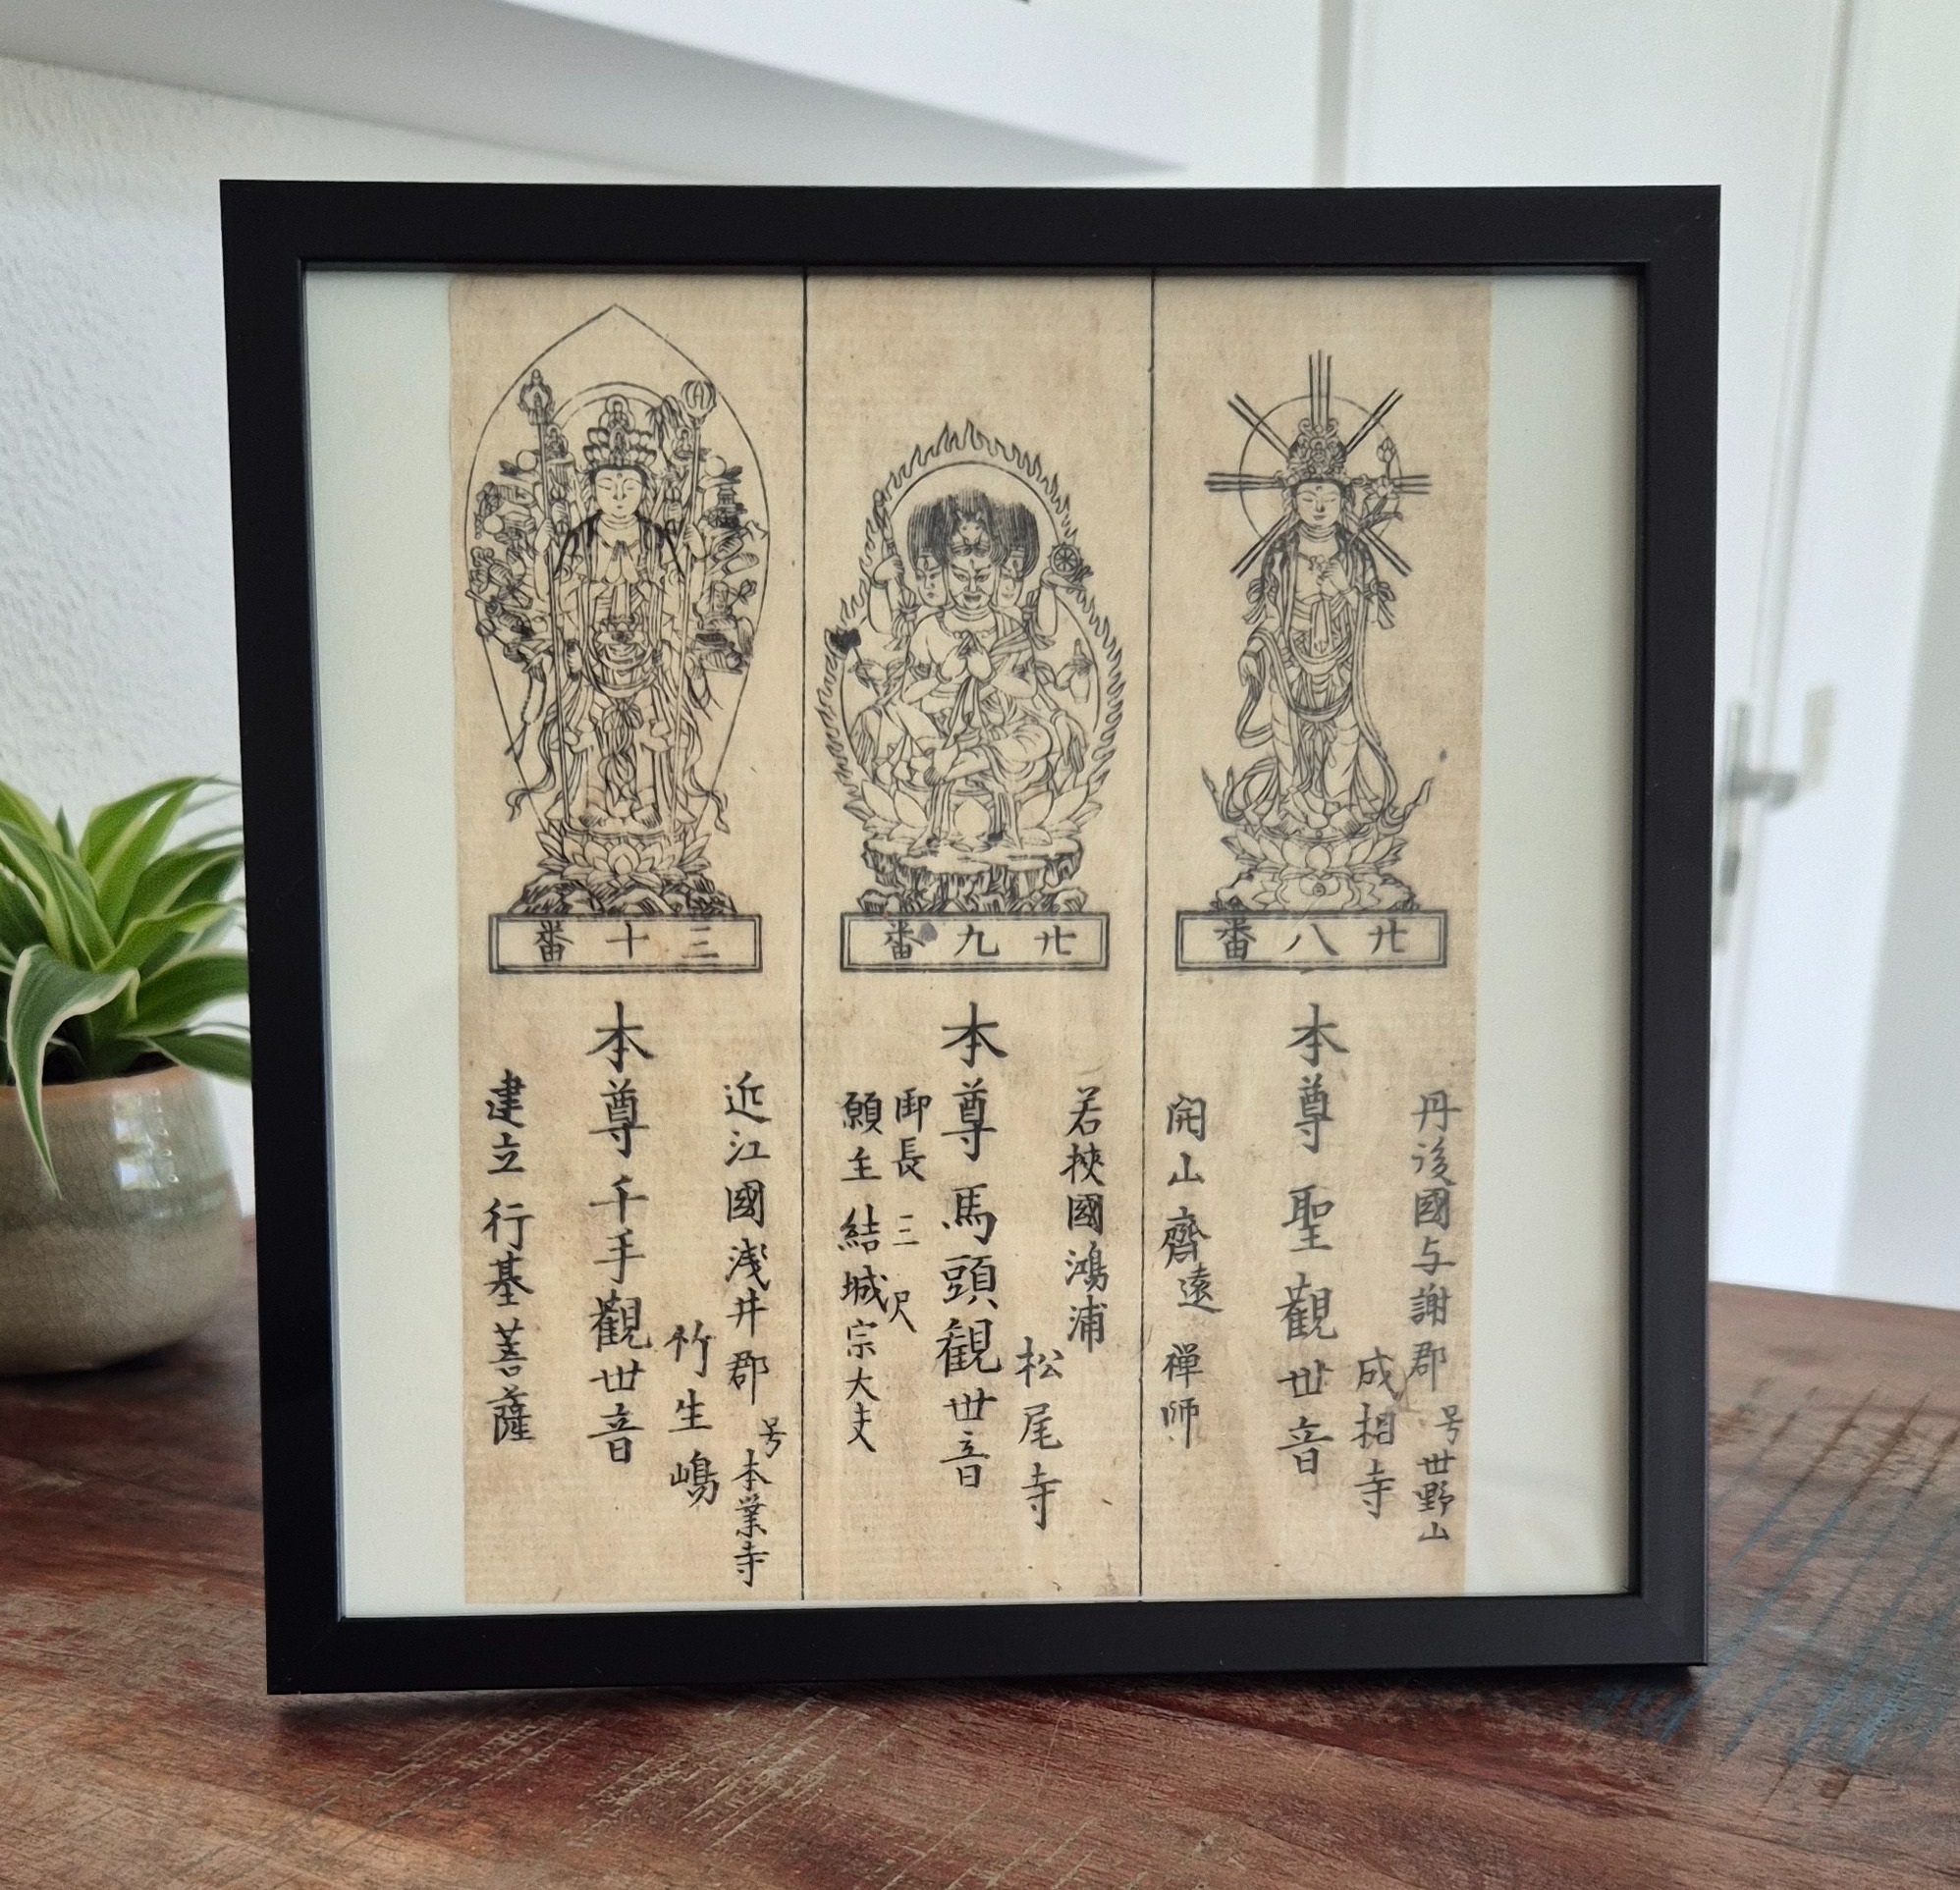 廿八番
丹後國与謝郡
号世野山
成相寺
本尊 聖觀世音
開山齊遠禅師
廿九番
若挾國鴻浦
松尾寺
本尊 馬頭観世音
御長三尺
願主 結城宗大夫
三十番
近江國浅井郡
号本業寺
竹生嶋
本尊 千手觀世音
建立 行基菩薩